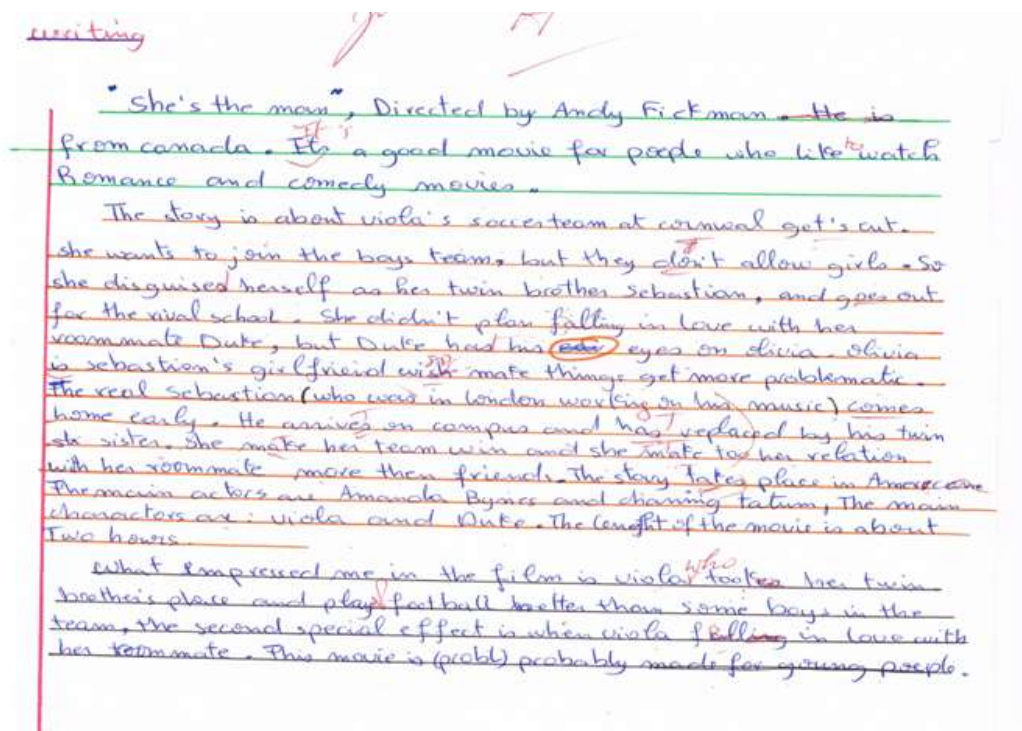 writing
"She's the man", Directed by Andy Fickman. He is
from canada. It's a good movie for poeple who like to watch
Romance and comedy movies.
The story is about viola's soccer team at cornwal get's cut.
she wants to join the boys team, but they don't allow girls. So
she disguised herself as her twin brother sebastian, and goes out
for the rival school. She didn't plan falling in love with her
roommate Duke, but Duke had his eyes on olivia. olivia
is sebastian's girlfriend make things get more problematic.
The real Sebastian (who was in london working on his music) comes
home early. He arrives on campus and has replaced by his twin
sister. She make her team win and she make too her relation
with her roommate more then friends. The story takes place in
The main actors are Amanda Bynes and channing tatum, The main
charactors are: viola and Duke. The lenght of the movie is about
Two hours.
what empressed me in the film is viola who took her twin
brother's place and play football better than some boys in the
team, the second special effect is when viola falling in love with
her roommate. This movie is (probl) probably made for young poeple.